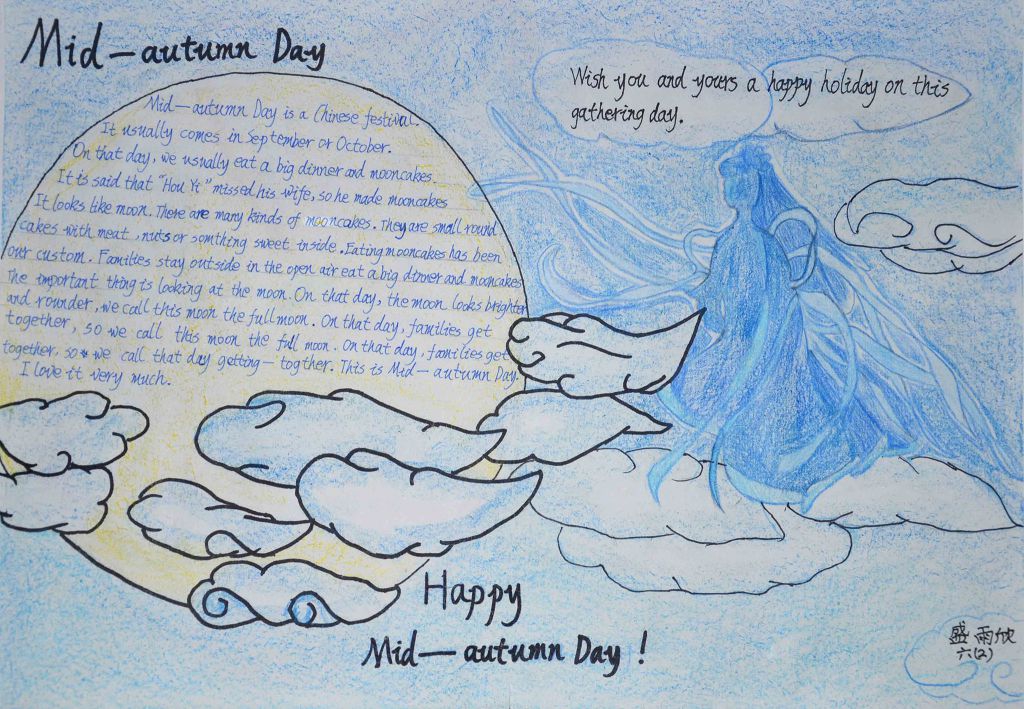 Mid-autumn Day
Wish you and yours a happy holiday on this
gathering day.
Mid-autumn Day is a Chinese festival.
It usually comes in September or October.
On that day, we usually eat a big dinner and mooncakes.
It is said that "Hou Yi" missed his wife, so he made mooncakes
It looks like moon. There are many kinds of mooncakes. They are small round
cakes with meat, nuts or somthing sweet inside. Eating mooncakes has been
our custom. Families stay outside in the open air eat a big dinner and mooncakes
The important thing is looking at the moon. On that day, the moon looks brighter
and rounder, we call this moon the full moon. On that day, families get
together, so we call this moon the full moon. On that day, families get
together, so we call that day getting-togther. This is Mid-autumn Day.
I love it very much.
Happy
Mid-autumn Day!
盛雨欣
六(2)